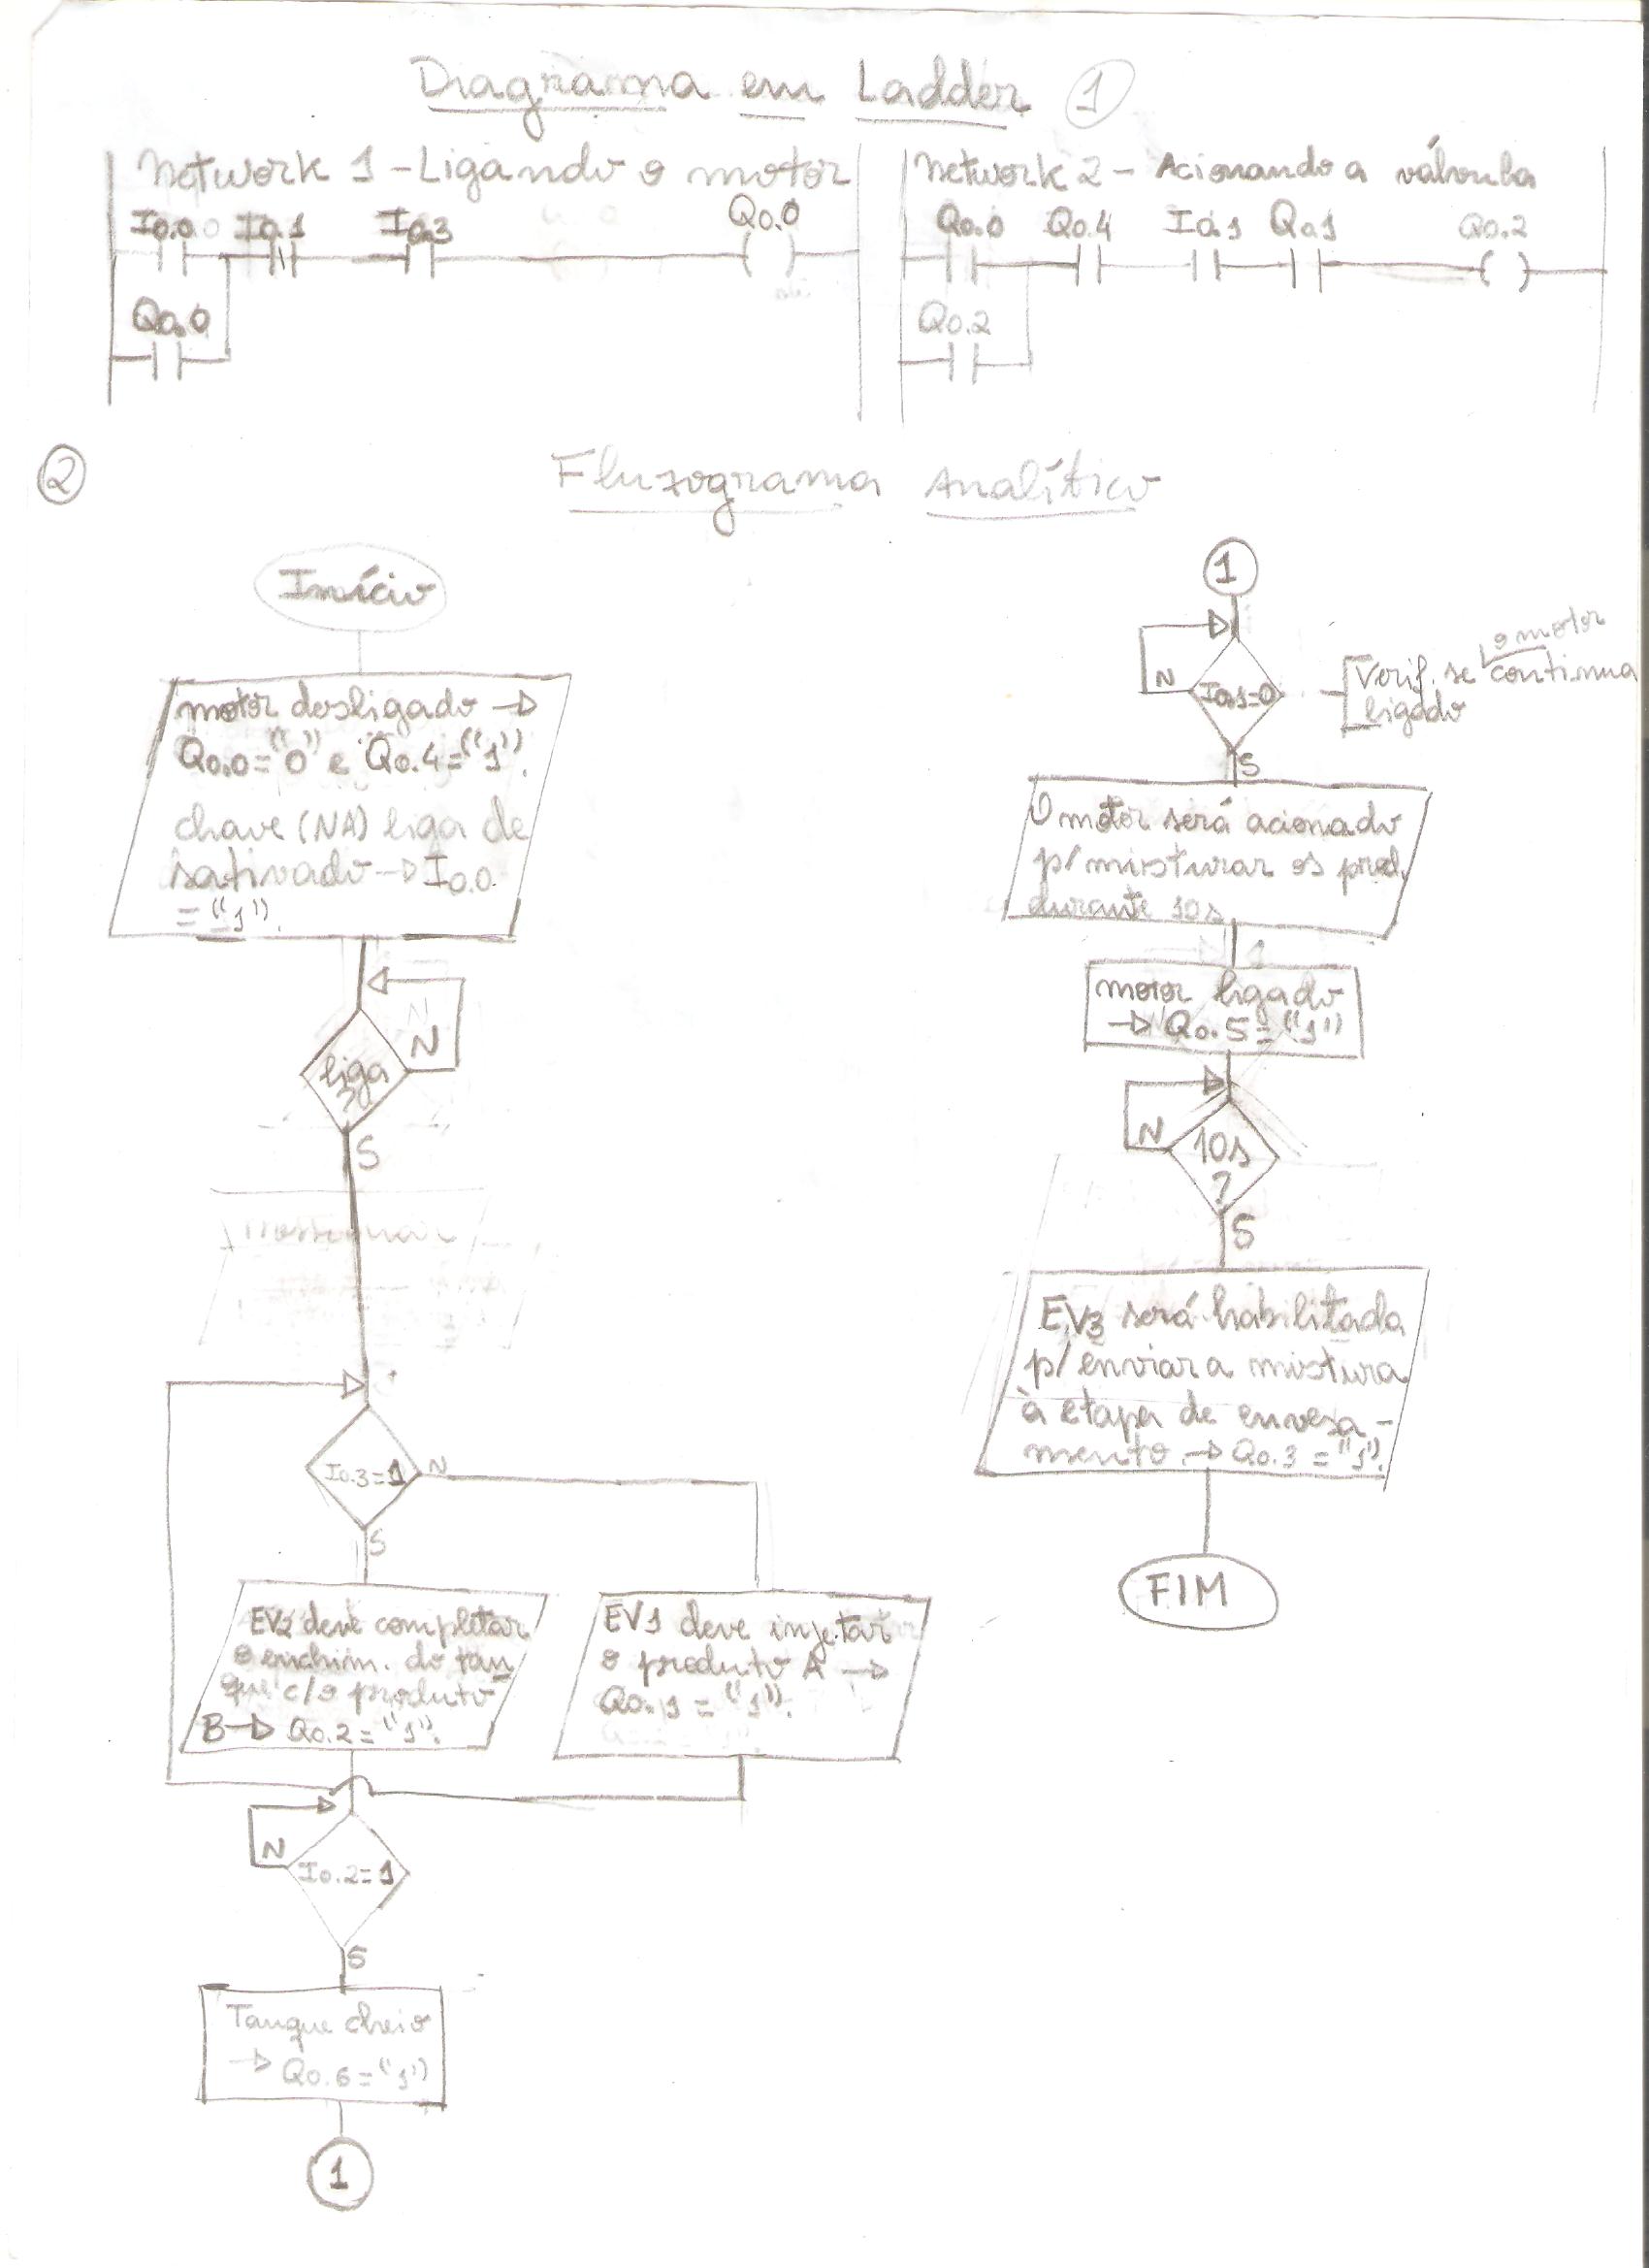 Diagrama em Ladder 1
Network 1 - Ligando o motor
I0.0 I0.1 I0.3 Q0.0
Q0.0
Network 2 - Acionando a válvula
Q0.0 Q0.4 I0.1 Q0.1 Q0.2
Q0.2
2
Fluxograma Analítico
Início
motor desligado →
Q0.0="0" e Q0.4="1".
chave (NA) liga de
sativado → I0.0
="1".
liga
?
N
S
I0.3=1
N
S
EV2 deve completar
o enchim. do tan
que c/o produto
B → Q0.2="1".
EV1 deve injetar
o produto A →
Q0.1="1".
N
I0.2=1
S
Tanque cheio
→ Q0.6="1"
1
1
N
I0.1=0
Verif. se o motor continua
ligado
S
O motor será acionado
p/ misturar os prod.
durante 10s
motor ligado
→ Q0.5="1"
N
10s
?
S
EV3 será habilitada
p/ enviar a mistura
à etapa de envesa-
mento → Q0.3="1".
FIM